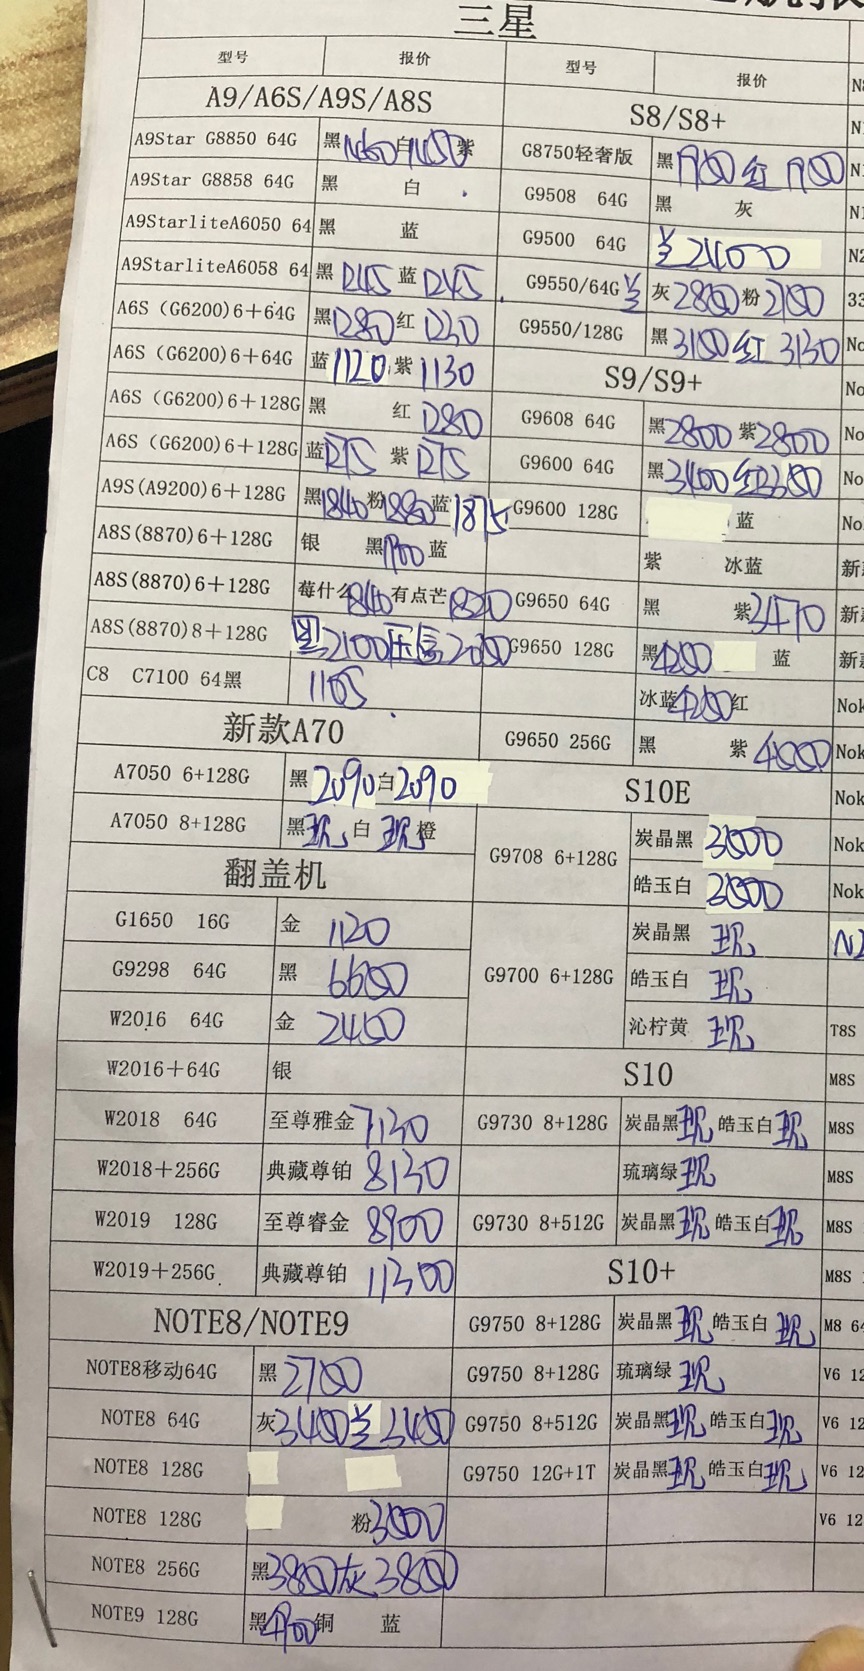 三星
型号 报价 型号 报价
A9/A6S/A9S/A8S
A9Star G8850 64G 黑 白 紫
A9Star G8858 64G 黑 白
A9StarliteA6050 64 黑 蓝
A9StarliteA6058 64 黑1245 蓝1245
A6S (G6200)6+64G 黑1280红1230
A6S (G6200)6+64G 蓝1120紫1130
A6S (G6200)6+128G 黑 红1280
A6S (G6200)6+128G 蓝1275 紫1275
A9S(A9200)6+128G 黑1840粉1880蓝1875
A8S(8870)6+128G 银 黑 蓝
A8S(8870)6+128G 莓什么 有点芒
A8S(8870)8+128G 黑2100
C8 C7100 64黑 1105
新款A70
A7050 6+128G 黑2090白2090
A7050 8+128G 黑现 白现橙
翻盖机
G1650 16G 金 1120
G9298 64G 黑 6600
W2016 64G 金 2400
W2016+64G 银
W2018 64G 至尊雅金7130
W2018+256G 典藏尊铂 8130
W2019 128G 至尊睿金 8900
W2019+256G 典藏尊铂 11300
NOTE8/NOTE9
NOTE8移动64G 黑2700
NOTE8 64G 灰3400兰3400
NOTE8 128G
NOTE8 128G 粉3800
NOTE8 256G 黑3800灰3800
NOTE9 128G 黑 铜 蓝
S8/S8+
G8750轻奢版 黑1700红1700
G9508 64G 黑 灰
G9500 64G 兰2400
G9550/64G兰 灰2800粉2100
G9550/128G 黑3100红3130
S9/S9+
G9608 64G 黑2800紫2800
G9600 64G 黑3400红
G9600 128G 蓝
紫 冰蓝
G9650 64G 黑 紫3470
G9650 128G 黑4200 蓝
冰蓝4200红
G9650 256G 黑 紫4000
S10E
G9708 6+128G 炭晶黑 3800
皓玉白 3800
G9700 6+128G 炭晶黑 现
皓玉白 现
沁柠黄 现
S10
G9730 8+128G 炭晶黑现 皓玉白现
琉璃绿现
G9730 8+512G 炭晶黑现 皓玉白现
S10+
G9750 8+128G 炭晶黑现 皓玉白现
G9750 8+128G 琉璃绿 现
G9750 8+512G 炭晶黑现 皓玉白现
G9750 12G+1T 炭晶黑现 皓玉白现
N2
33
No
No
No
No
No
新
新
新
Nok
Nok
Nok
Nok
Nok
T8S
M8S
M8S
M8S
M8S
M8S
M8 64
V6 12
V6 12
V6 12
V6 12